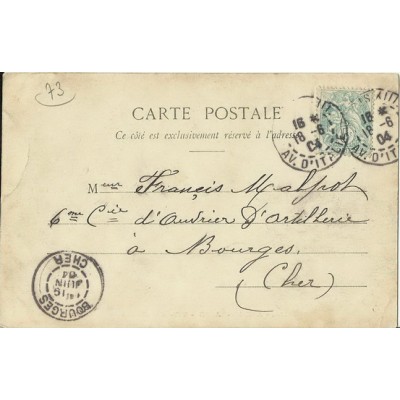 73
CARTE POSTALE
Ce côté est exclusivement réservé à l'adresse
16
18-6
04
AV. D'ITALIE
16
18-6
04
AV. D'ITALIE
Mmeur Francis Malpot
6me Cie d'Ouvrier D'Artillerie
à Bourges
(Cher)
BOURGES
19
JUIN
04
CHER